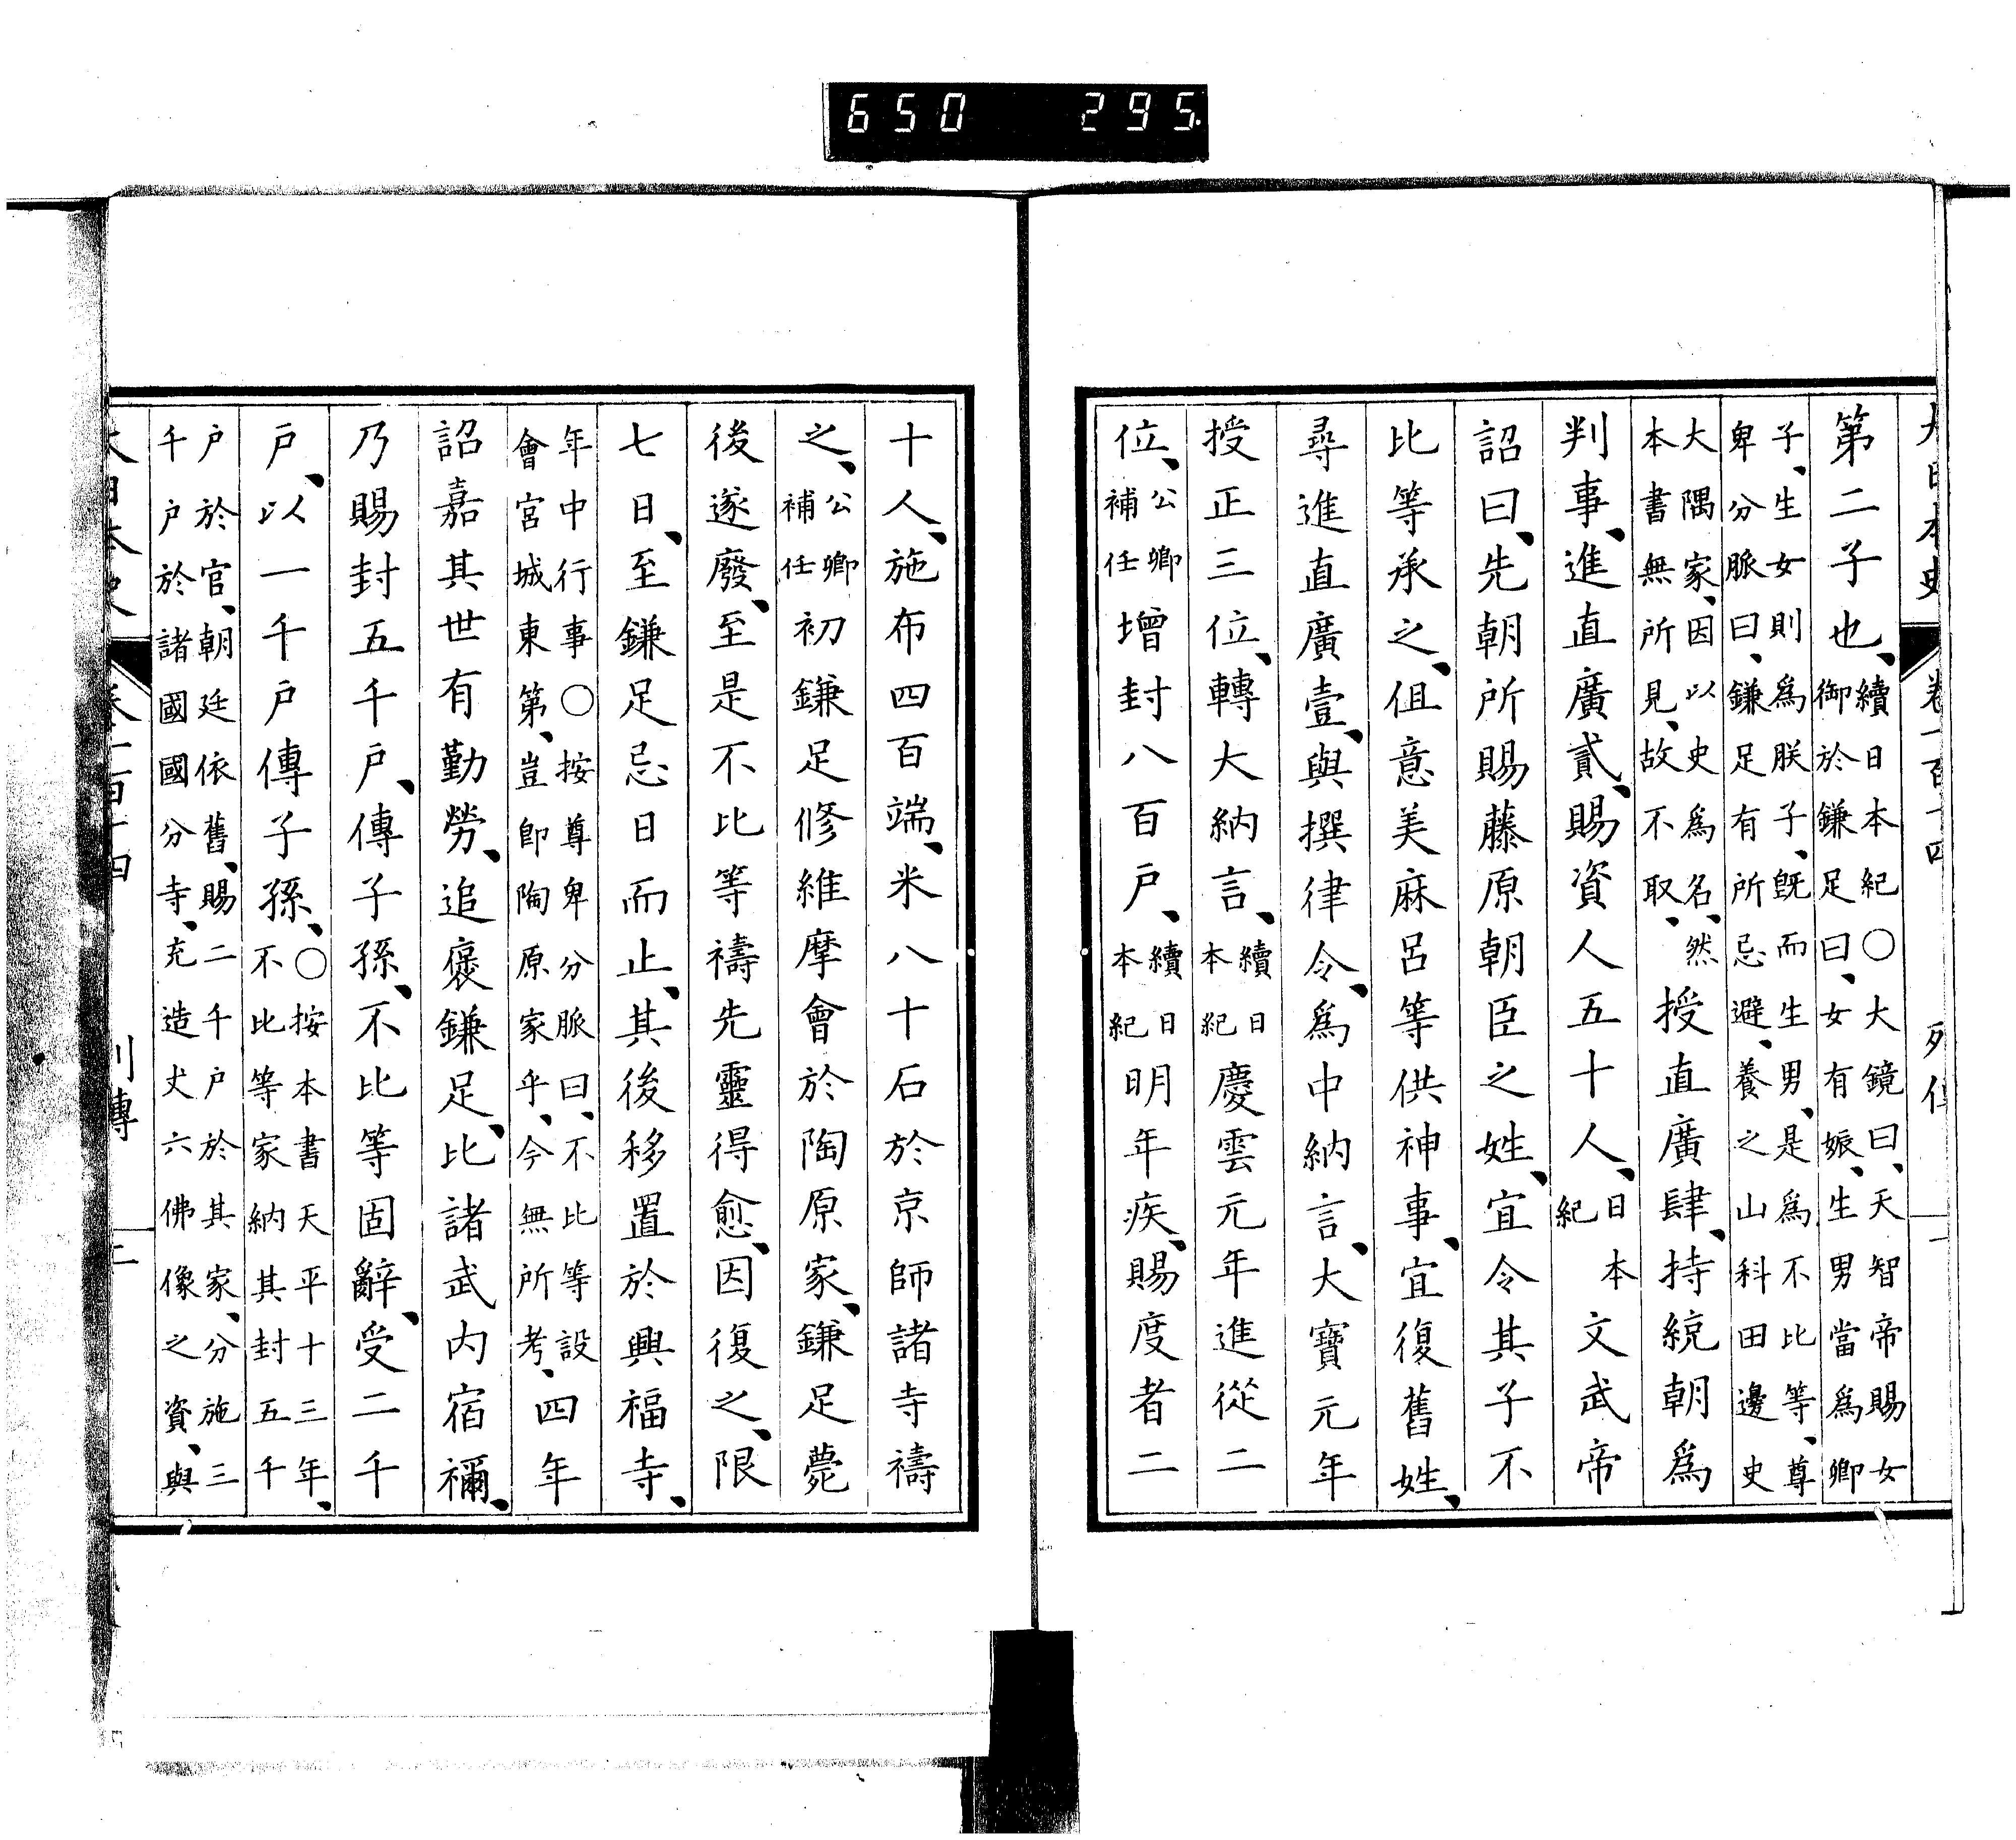 大日本史 卷一百十四 列傳 一
第二子也、續日本紀〇大鏡曰、天智帝賜女御於鎌足曰、女有娠、生男當爲卿
子、生女則爲朕子、旣而生男、是爲不比等、尊卑分脈曰、鎌足有所忌避、養之山科田邊史
大隅家、因以史爲名、然本書無所見、故不取、授直廣肆、持統朝爲
判事、進直廣貳、賜資人五十人、日本紀文武帝
詔曰、先朝所賜藤原朝臣之姓、宜令其子不
比等承之、但意美麻呂等供神事、宜復舊姓、
尋進直廣壹、與撰律令、爲中納言、大寶元年
授正三位、轉大納言、續日本紀慶雲元年進從二
位、公卿補任增封八百戸、續日本紀明年疾、賜度者二
十人、施布四百端、米八十石於京師諸寺禱
之、公卿補任初鎌足修維摩會於陶原家、鎌足薨
後遂廢、至是不比等禱先靈得愈、因復之、限
七日、至鎌足忌日而止、其後移置於興福寺、
年中行事〇按尊卑分脈曰、不比等設會宮城東第、豈卽陶原家乎、今無所考、四年
詔嘉其世有勤勞、追褒鎌足、比諸武内宿禰、
乃賜封五千戸、傳子孫、不比等固辭、受二千
戸、以一千戸傳子孫、〇按本書天平十三年、不比等家納其封五千
戸於官、朝廷依舊、賜二千戸於其家、分施三千戸於諸國國分寺、充造丈六佛像之資、與
大日本史 卷一百十四 列傳 二
650 295